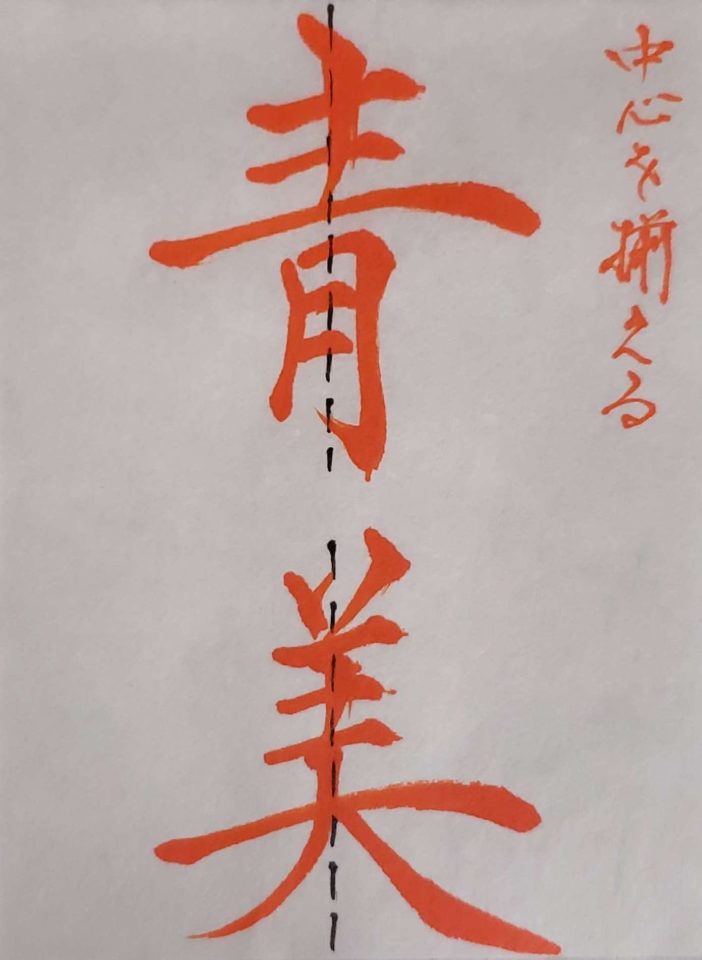 中心を揃える
青美